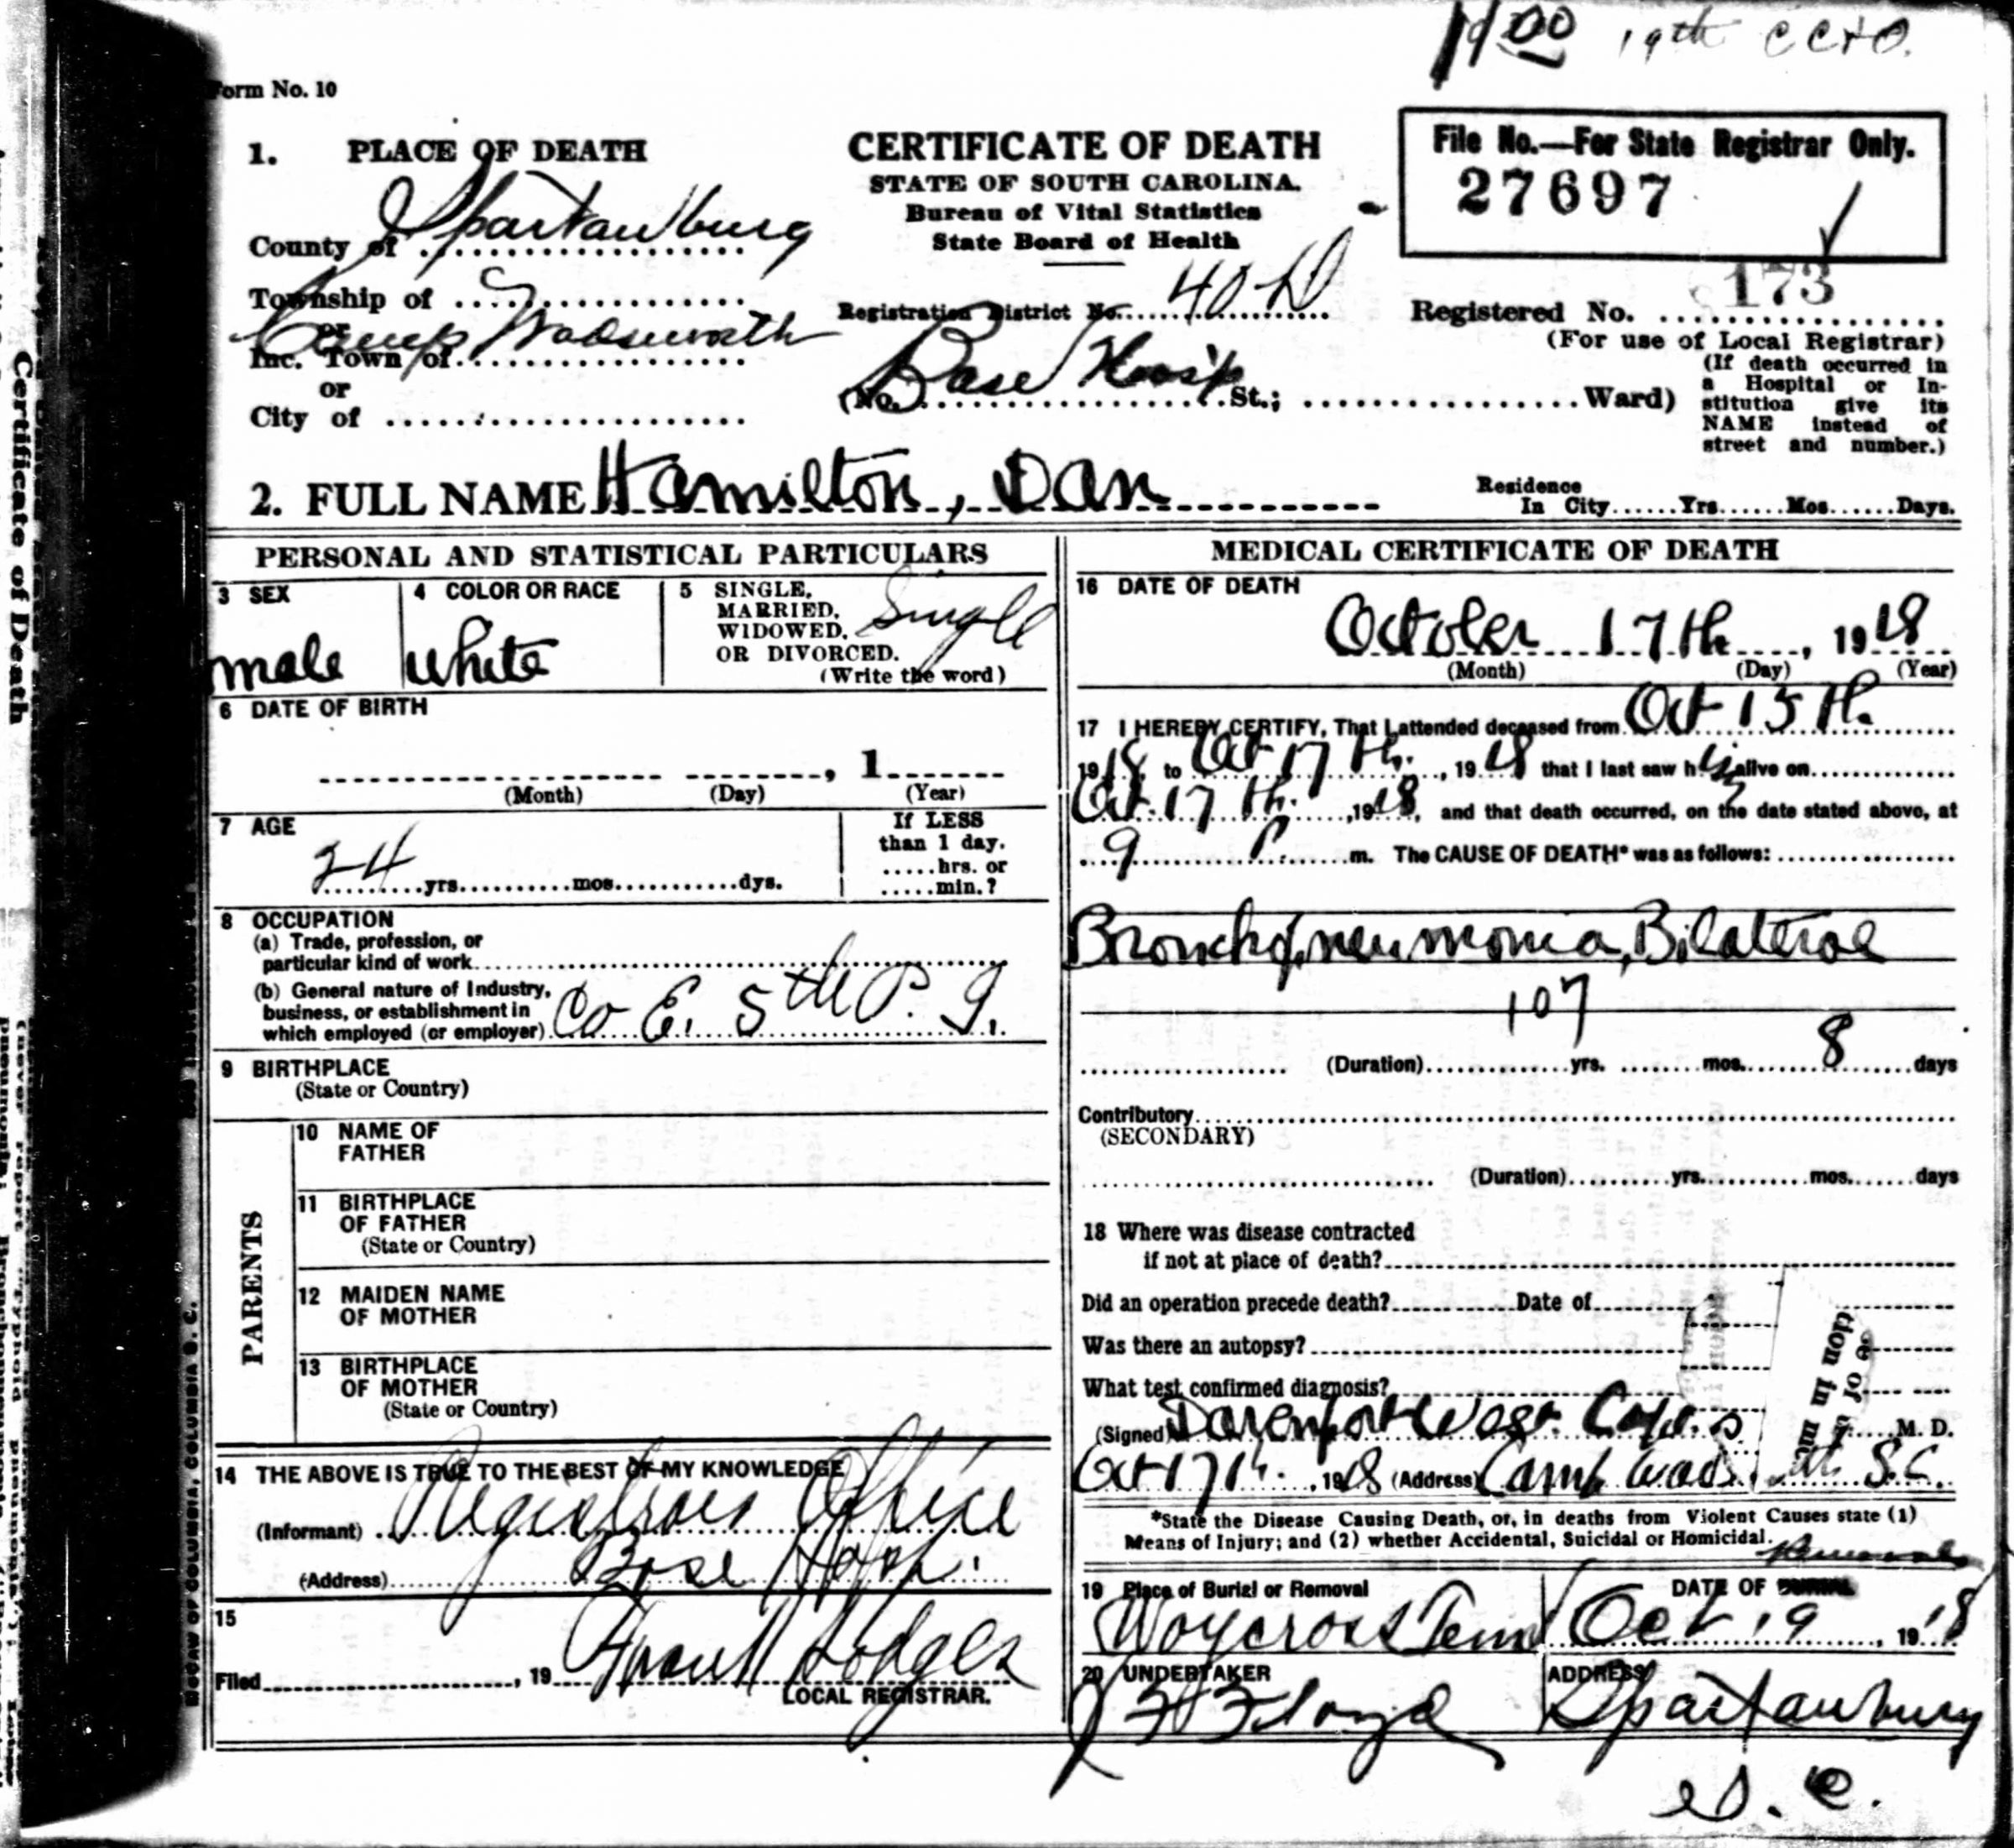 $1.00 19th
Form No. 10
1. PLACE OF DEATH
County of Spartanburg
Township of
or
Camp Wadsworth
Inc. Town of
or
City of
CERTIFICATE OF DEATH
STATE OF SOUTH CAROLINA.
Bureau of Vital Statistics
State Board of Health
Registration District No. 40 D
(No. Base Hosp St.; Ward)
File No.—For State Registrar Only.
27697
173
Registered No.
(For use of Local Registrar)
(If death occurred in
a Hospital or In-
stitution give its
NAME instead of
street and number.)
2. FULL NAME Hamilton, Dan
Residence
In City Yrs. Mos. Days.
PERSONAL AND STATISTICAL PARTICULARS
3 SEX
male
4 COLOR OR RACE
white
5 SINGLE,
MARRIED,
WIDOWED,
OR DIVORCED.
Single
(Write the word)
6 DATE OF BIRTH
, 1
(Month) (Day) (Year)
7 AGE
24 yrs. mos. dys.
If LESS
than 1 day.
hrs. or
min.?
8 OCCUPATION
(a) Trade, profession, or
particular kind of work
(b) General nature of Industry,
business, or establishment in
which employed (or employer) Co E. 5th P. I.
9 BIRTHPLACE
(State or Country)
PARENTS
10 NAME OF
FATHER
11 BIRTHPLACE
OF FATHER
(State or Country)
12 MAIDEN NAME
OF MOTHER
13 BIRTHPLACE
OF MOTHER
(State or Country)
14 THE ABOVE IS TRUE TO THE BEST OF MY KNOWLEDGE
(Informant) Registrars Office
(Address) Base Hosp.
15
Filed , 19 Hodges
LOCAL REGISTRAR.
MEDICAL CERTIFICATE OF DEATH
16 DATE OF DEATH
October 17th, 1918
(Month) (Day) (Year)
17 I HEREBY CERTIFY, That I attended deceased from Oct 15th.
1918, to Oct 17th., 1918 that I last saw him alive on
Oct. 17th., 1918, and that death occurred, on the date stated above, at
9 P. m. The CAUSE OF DEATH* was as follows:
Bronchopneumonia, Bilateral
107
(Duration) yrs. mos. 8 days
Contributory
(SECONDARY)
(Duration) yrs. mos. days
18 Where was disease contracted
if not at place of death?
Did an operation precede death? Date of
Was there an autopsy?
What test confirmed diagnosis?
(Signed) Davenport West. M. D.
Oct 17th., 1918 (Address) Camp Wads S.C.
*State the Disease Causing Death, or, in deaths from Violent Causes state (1)
Means of Injury; and (2) whether Accidental, Suicidal or Homicidal.
Removal
19 Place of Burial or Removal
Waycross Tenn
DATE OF BURIAL
Oct 19, 1918
20 UNDERTAKER
J F Floyd
ADDRESS
Spartanburg
S. C.
Certificate of Death
MCCAW OF COLUMBIA, COLUMBIA S. C.
tion in